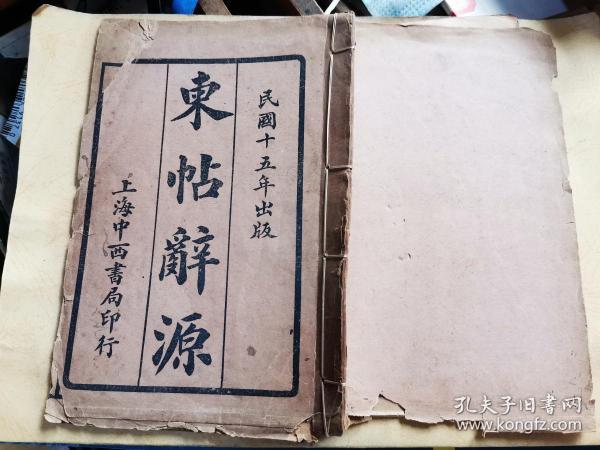 民國十五年出版
東帖辭源
上海中西書局印行
孔夫子旧书网
www.kongfz.com